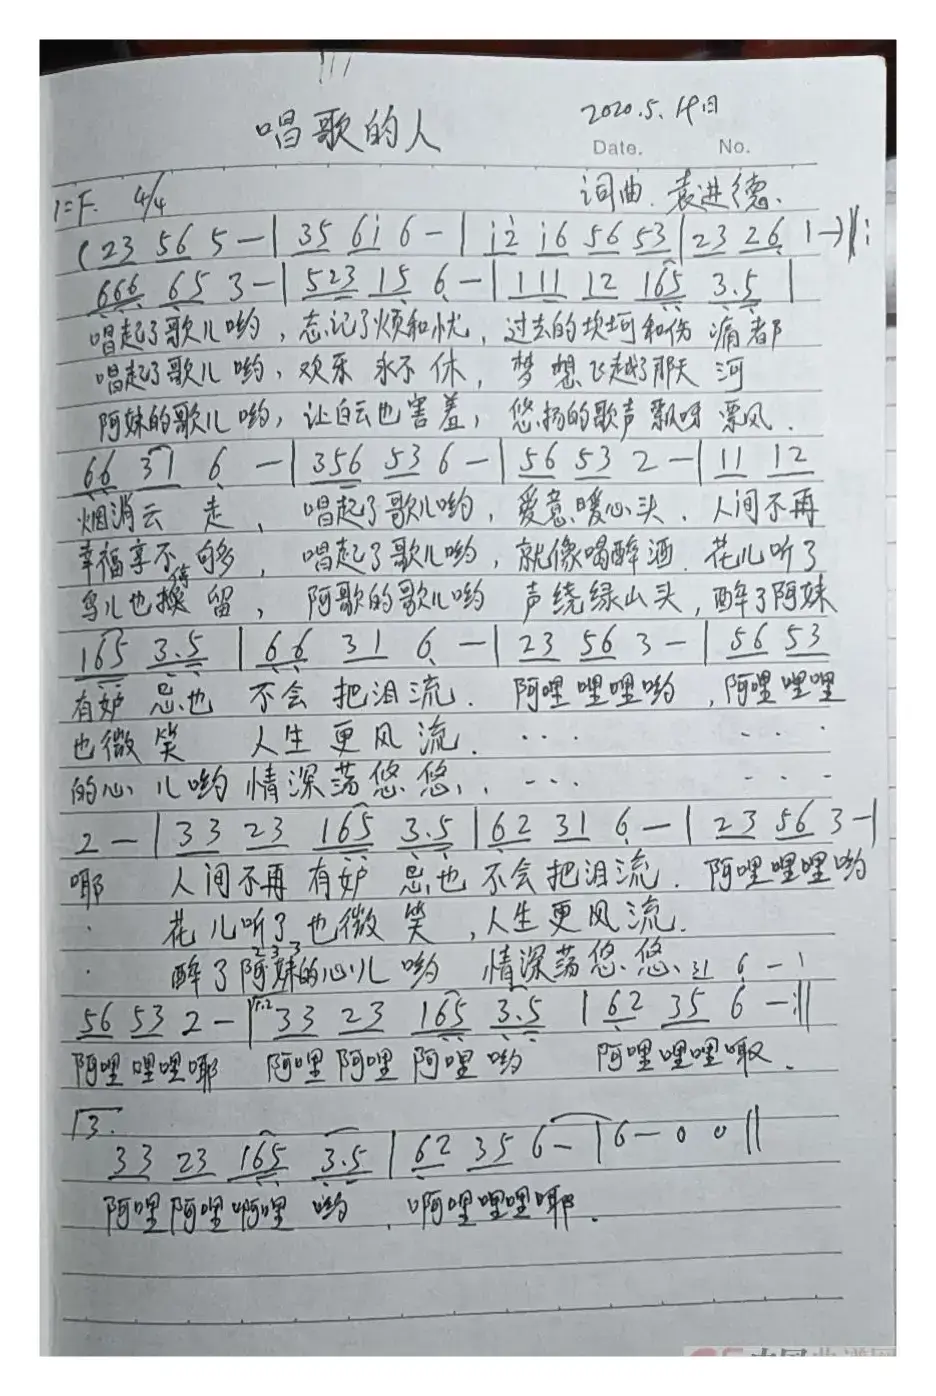 唱歌的人
2020.5.19日
Date. No.
1=F. 4/4 词曲.袁进德.
(23 56 5 - | 35 6i 6 - | i2 i6 56 53 | 23 26 1 -)‖:
666 65 3 - | 523 15 6 - | 111 12 165 3.5 |
唱起了歌儿哟，忘记了烦和忧，过去的坎坷和伤 痛都
唱起了歌儿 哟，欢乐 永不 休，梦 想 飞越了那天 河
阿妹的歌儿 哟，让白云也害羞，悠扬的歌声飘呀 票风.
66 31 6 - | 356 53 6 - | 56 53 2 - | 11 12
烟消云 走，唱起了歌儿哟，爱意暖心头.人间不再
幸福享不够，唱起了歌儿哟，就像喝醉酒.花儿听了
鸟儿也换停留，阿歌的歌儿哟 声绕绿山头，醉了阿妹
165 3.5 | 66 31 6 - | 23 56 3 - | 56 53
有妒 忌也 不会 把泪流. 阿哩哩哩哟，阿哩哩哩
也微 笑 人生 更风 流. ··· ···
的心儿哟 情深荡悠悠，. ··· ···
2 - | 33 23 165 3.5 | 62 31 6 - | 23 56 3 - |
耶 人间不再 有妒 忌也 不会把泪流. 阿哩哩哩哟
· 花儿听了也微 笑，人生更风流.
2 3 3
· 醉了阿妹的心儿 哟 情深荡悠悠. 31 6 - |
56 53 2 - | 1.2 33 23 165 3.5 | 62 35 6 - :‖
阿哩哩哩耶 阿哩阿哩阿哩 哟 阿哩哩哩呶.
3.
33 23 165 3.5 | 62 35 6 - | 6 - 0 0 ‖
阿哩阿哩啊哩 哟，啊哩哩哩耶.